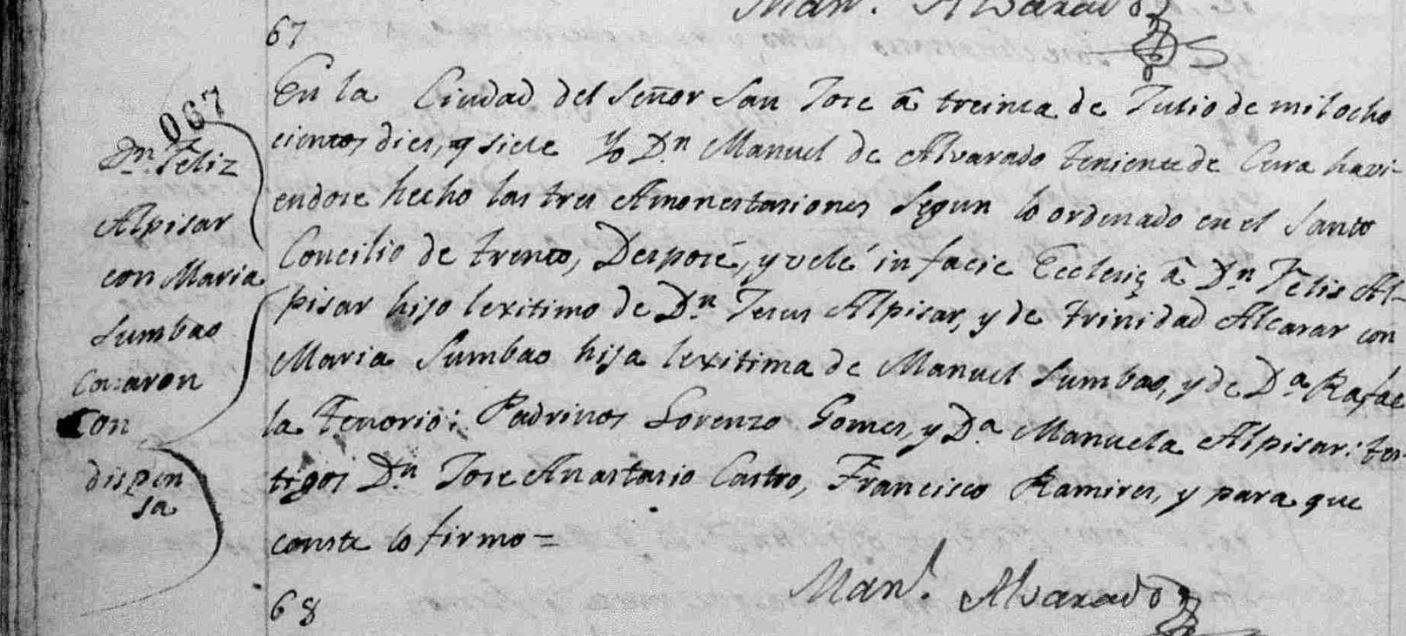 Man.l Alvarado
67
067
Dn. Feliz
Alpisar
con Maria
Sumbao
Cazaron
Con
dispen
sa
En la Ciudad del Señor San Jose â treinta de Julio de mil ocho
cientos dies, y siete Yo Dn Manuel de Alvarado teniente de Cura havi-
endose hecho las tres Amonestasiones Segun lo ordenado en el Santo
Concilio de trento, Desposé, y velé in facie Ecclecię â Dn Felis Al-
pisar hijo lexitimo de Dn Jesus Alpisar, y de trinidad Alcasar con
Maria Sumbao hija lexitima de Manuel Sumbao, y de Da Rafae
la Tenorio: Padrinos Lorenzo Gomes, y Da Manuela Alpisar: tes-
tigos Dn Jose Anastasio Castro, Francisco Ramires, y para que
conste lo firmo=
Man.l Alvarado
68